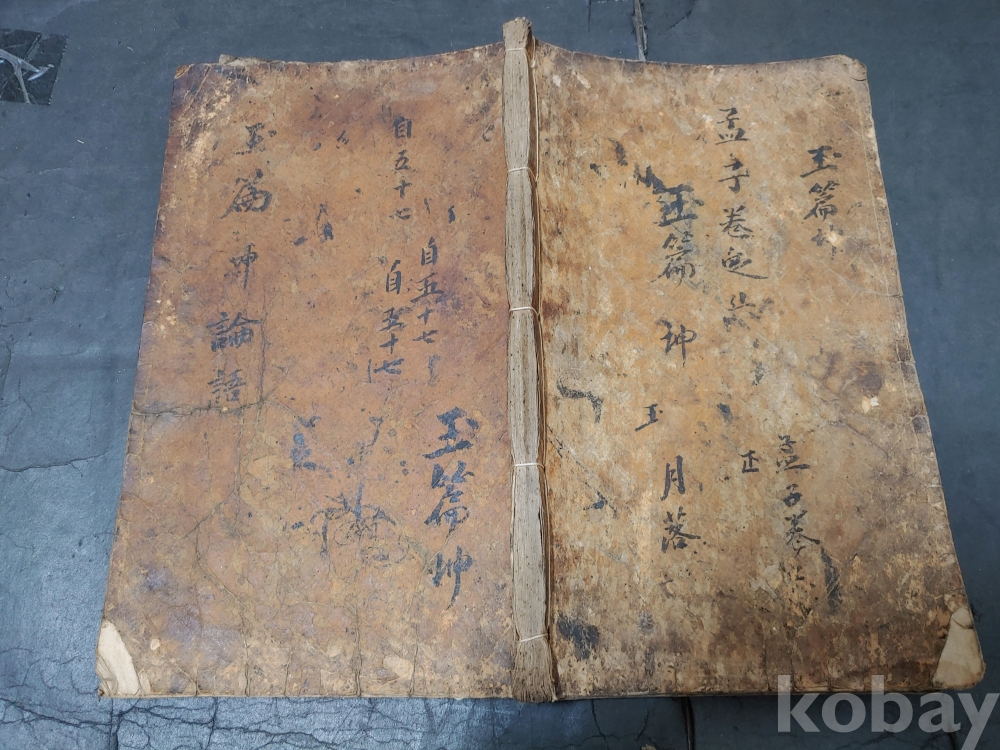 玉篇坤
孟子卷之
玉篇坤
月落
玉
正
孟子卷
玉篇坤
自五十七
自五十七
自五十七
玉篇坤
論語
kobay